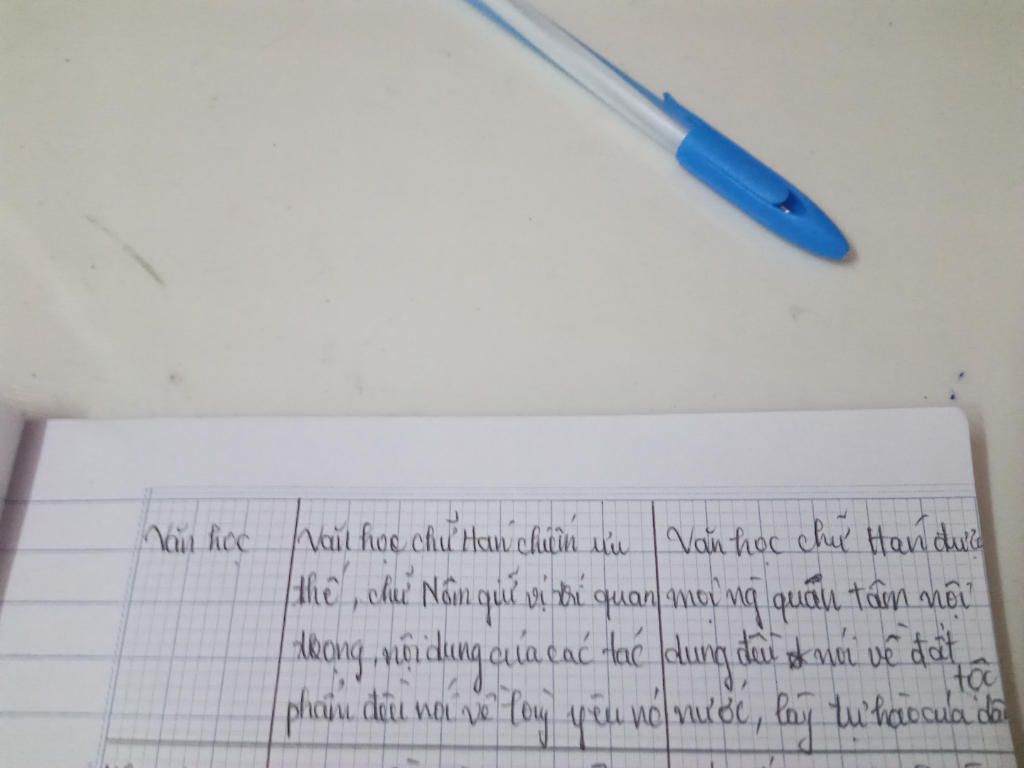 Văn học
Văn học chữ Hán chiếm ưu
thế, chữ Nôm giữ vị trí quan
trọng, nội dung của các tác
phẩm đều nói về lòng yêu nó
Văn học chữ Hán được
mọi ng quan tâm nội
dung đều nói về đất
nước, lòng tự hào của dân
tộc